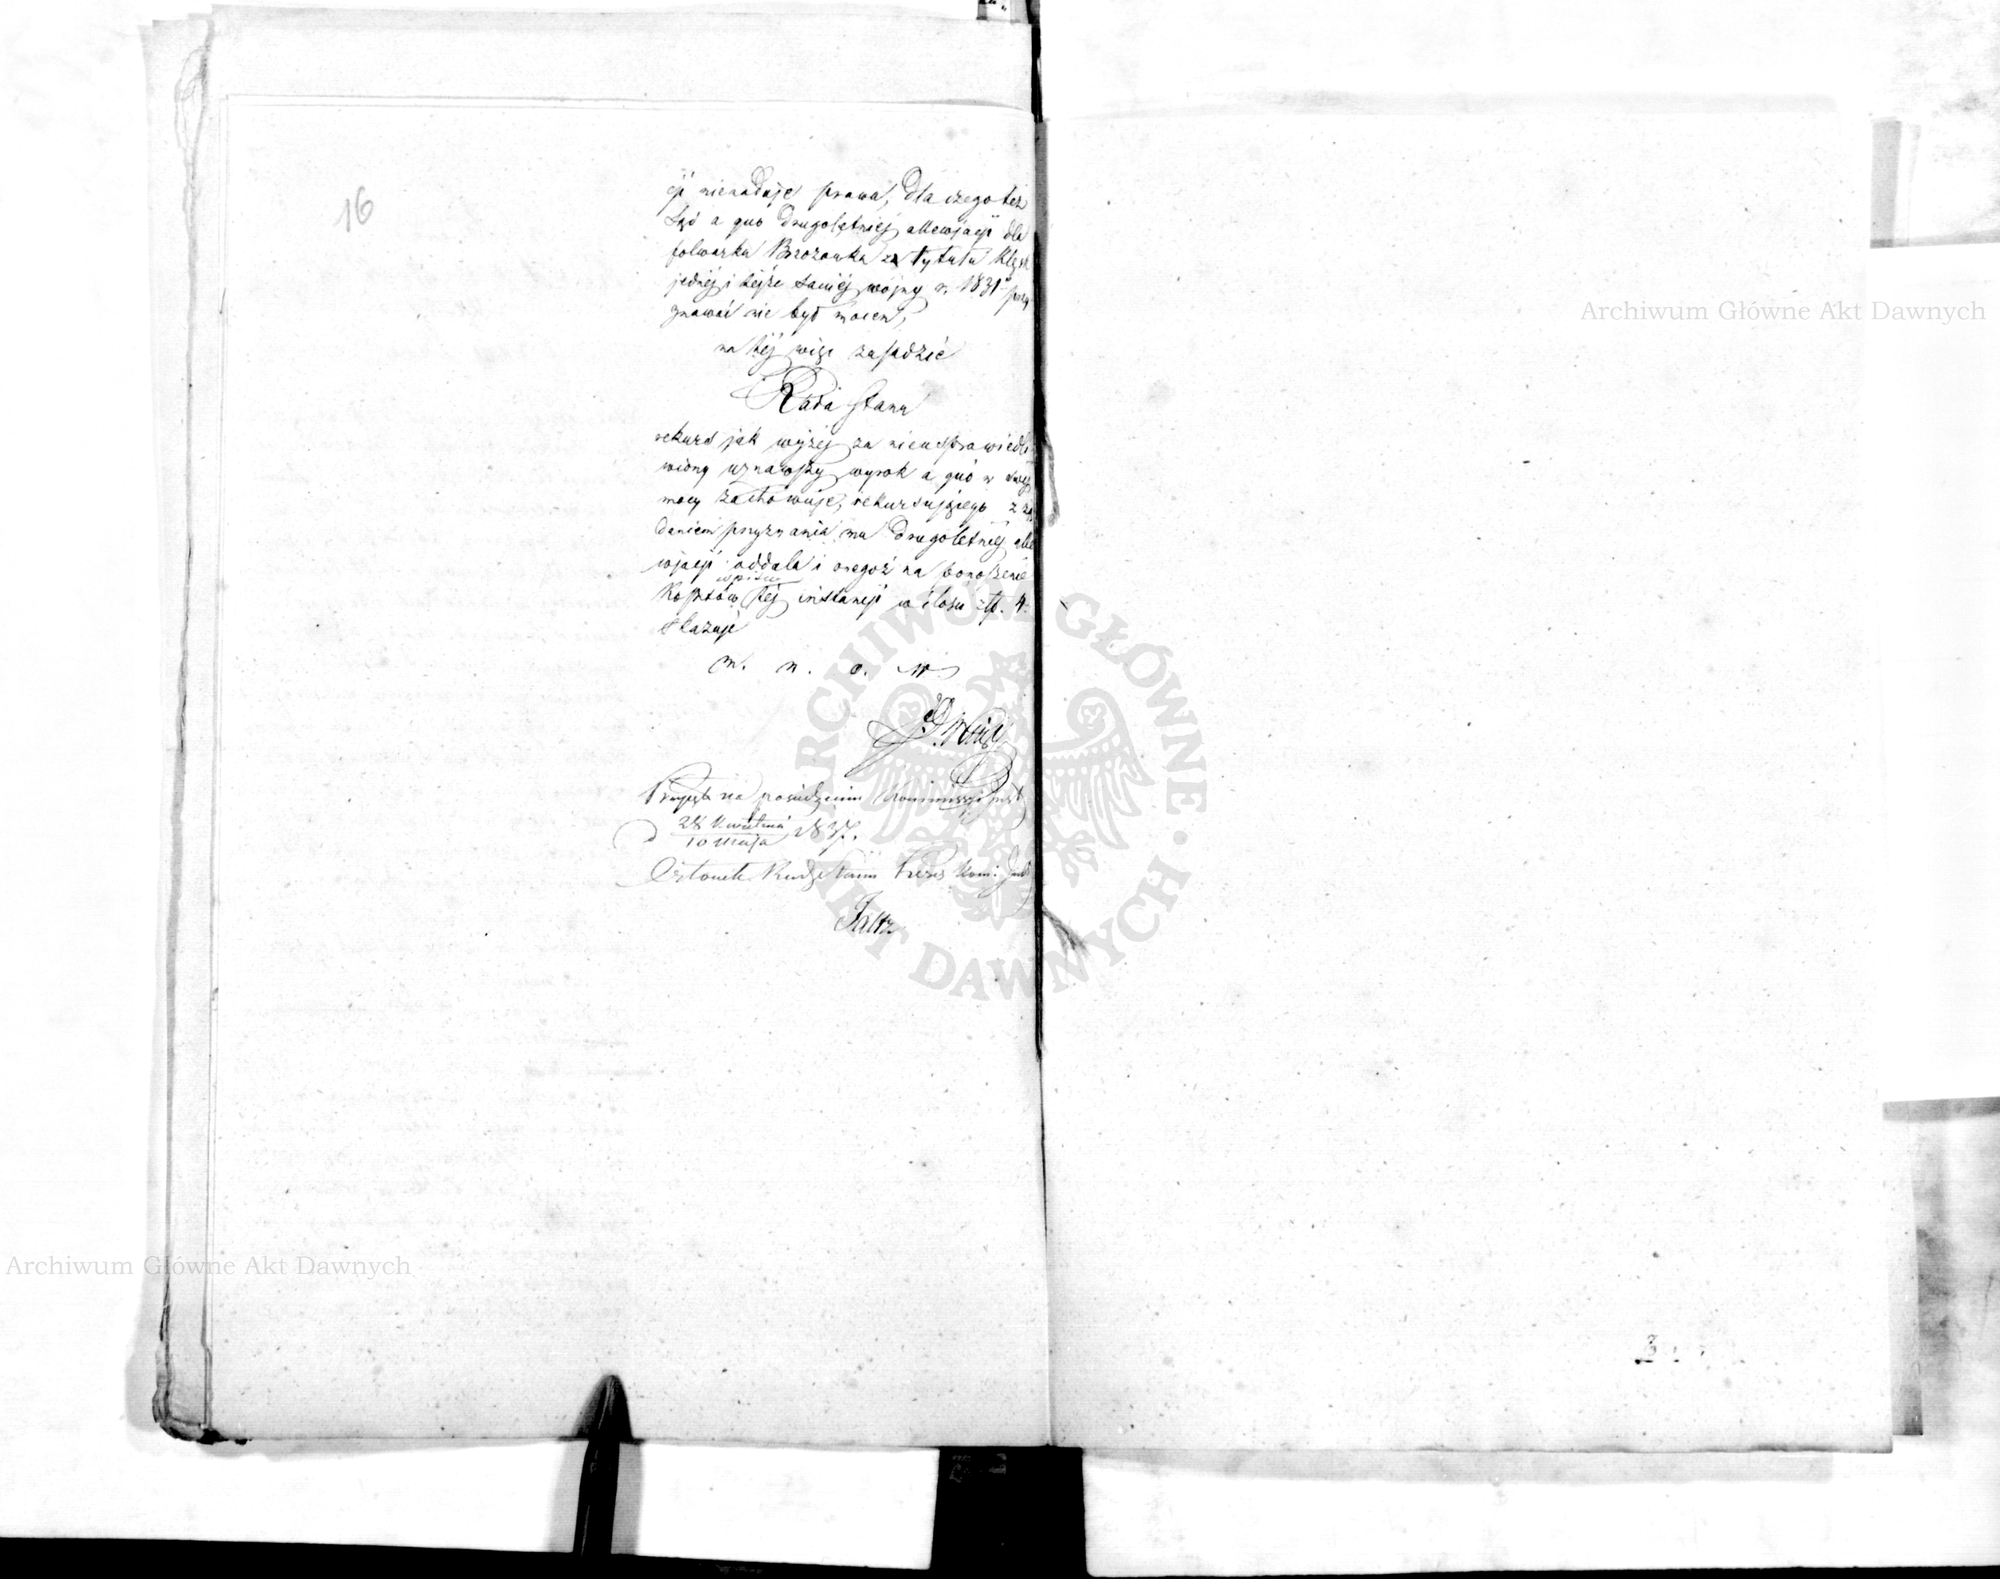 16
cji nienadaje prawa, dla czego też
Sąd a quo drugoletniej allewjacji dla
folwarku Brzozowka z tytułu klęsk
jednej i tejże samej wojny r. 1831 przy
znawać nie był mocen,
na tej więc zasadzie
Rada Stanu
rekurs jak wyżej za nieusprawiedli
wiony uznawszy wyrok a quo w swej
mocy zachowuje, rekursującego z żą
daniem przyznania mu drugoletniej alle
wjacji oddala i onegoż na ponoszenie
kosztów wpisu tej instancji w ilości złp. 4
skazuje
m. n. o. w
Przyjęto na posiedzeniu Kommissji
d 28 Kwietnia / 10 Maja 1837.
Członek Rady Stanu Prezes Kom.
Archiwum Główne Akt Dawnych
Archiwum Główne Akt Dawnych
ARCHIWUM GŁÓWNE · AKT DAWNYCH ·